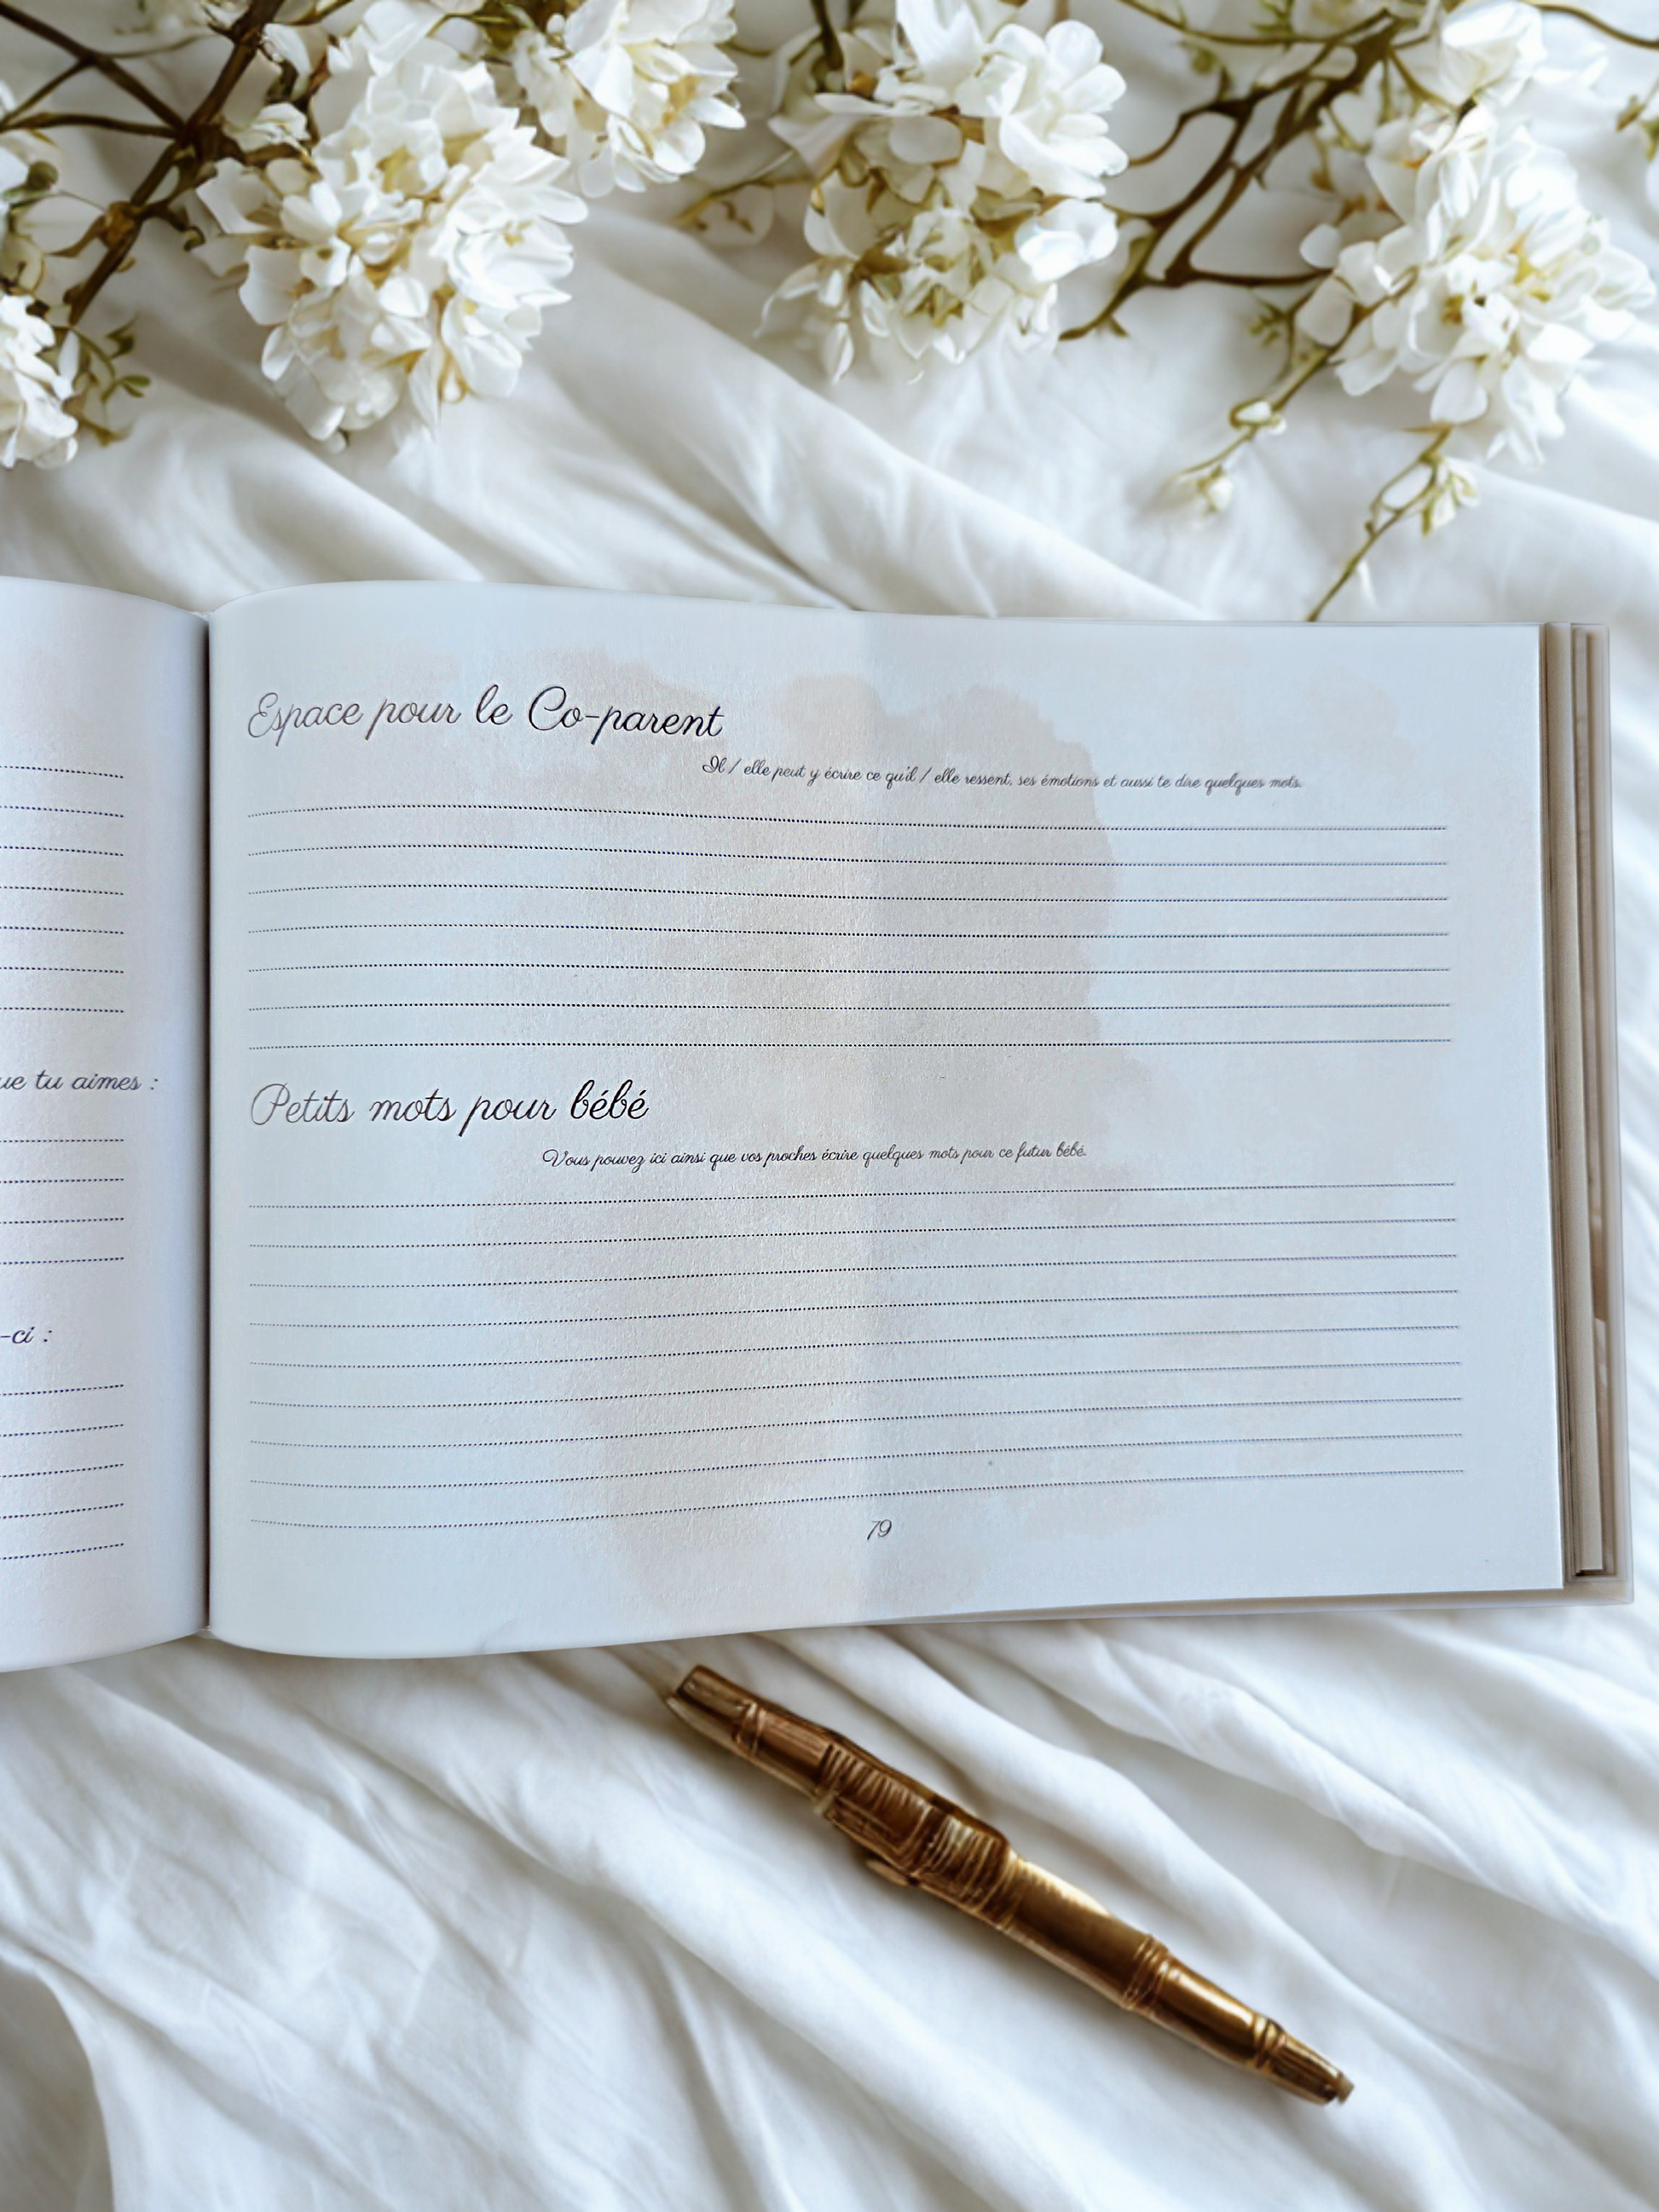 ue tu aimes :
-ci :
Espace pour le Co-parent
Il / elle peut y écrire ce qu'il / elle ressent, ses émotions et aussi te dire quelques mots.
Petits mots pour bébé
Vous pouvez ici ainsi que vos proches écrire quelques mots pour ce futur bébé.
79